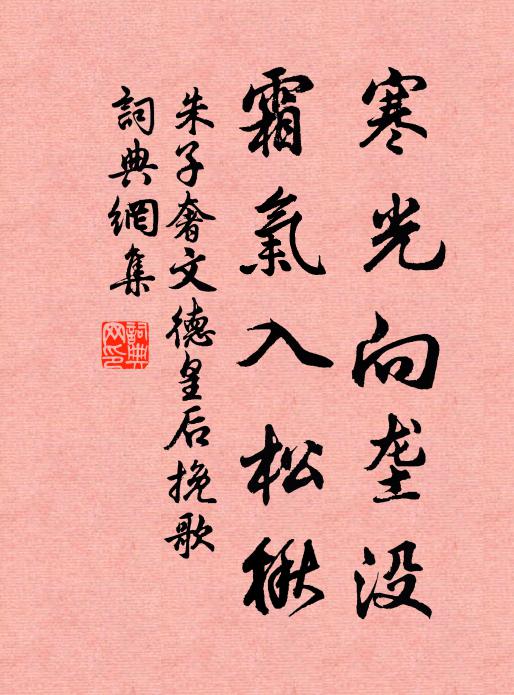 寒光向垄没
霜氣入松楸
朱子奢文德皇后挽歌
詞典網集
詞典網印